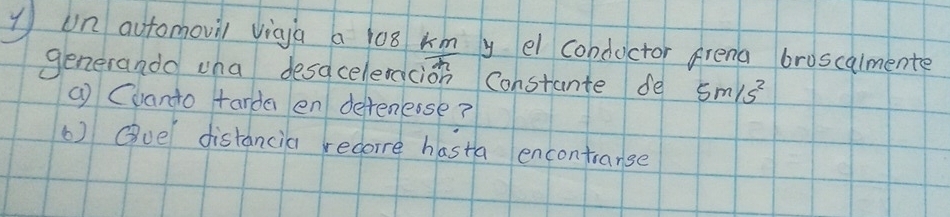 1) Un automovil viaja a 108 km/h y el conductor frena broscalmente
generando una desaceleración constante de 5m/s²
a) Cuanto tarda en detenerse?
b) Que distancia recorre hasta encontrarse